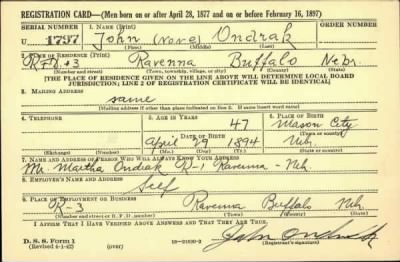 REGISTRATION CARD—(Men born on or after April 28, 1877 and on or before February 16, 1897)
SERIAL NUMBER 1. NAME (Print) ORDER NUMBER
U 1797 John (None) Ondrak
(First) (Middle) (Last)
2. PLACE OF RESIDENCE (Print)
R#3 Ravenna Buffalo Nebr.
(Number and street) (Town, township, village, or city) (County) (State)
[THE PLACE OF RESIDENCE GIVEN ON THE LINE ABOVE WILL DETERMINE LOCAL BOARD
JURISDICTION; LINE 2 OF REGISTRATION CERTIFICATE WILL BE IDENTICAL]
3. MAILING ADDRESS
same
[Mailing address if other than place indicated on line 2. If same insert word same]
4. TELEPHONE 5. AGE IN YEARS 6. PLACE OF BIRTH
47 Mason City
DATE OF BIRTH (Town or county)
April 29 1894 Neb.
(Exchange) (Number) (Mo.) (Day) (Yr.) (State or country)
7. NAME AND ADDRESS OF PERSON WHO WILL ALWAYS KNOW YOUR ADDRESS
Martha Ondrak R-1 Ravenna - Neb
8. EMPLOYER'S NAME AND ADDRESS
Self
9. PLACE OF EMPLOYMENT OR BUSINESS
R-3 Ravenna Buffalo Neb
(Number and street or R. F. D. number) (Town) (County) (State)
I AFFIRM THAT I HAVE VERIFIED ABOVE ANSWERS AND THAT THEY ARE TRUE.
D. S. S. Form 1 John Ondrak
(Revised 4-1-42) (over) (Registrant's signature)